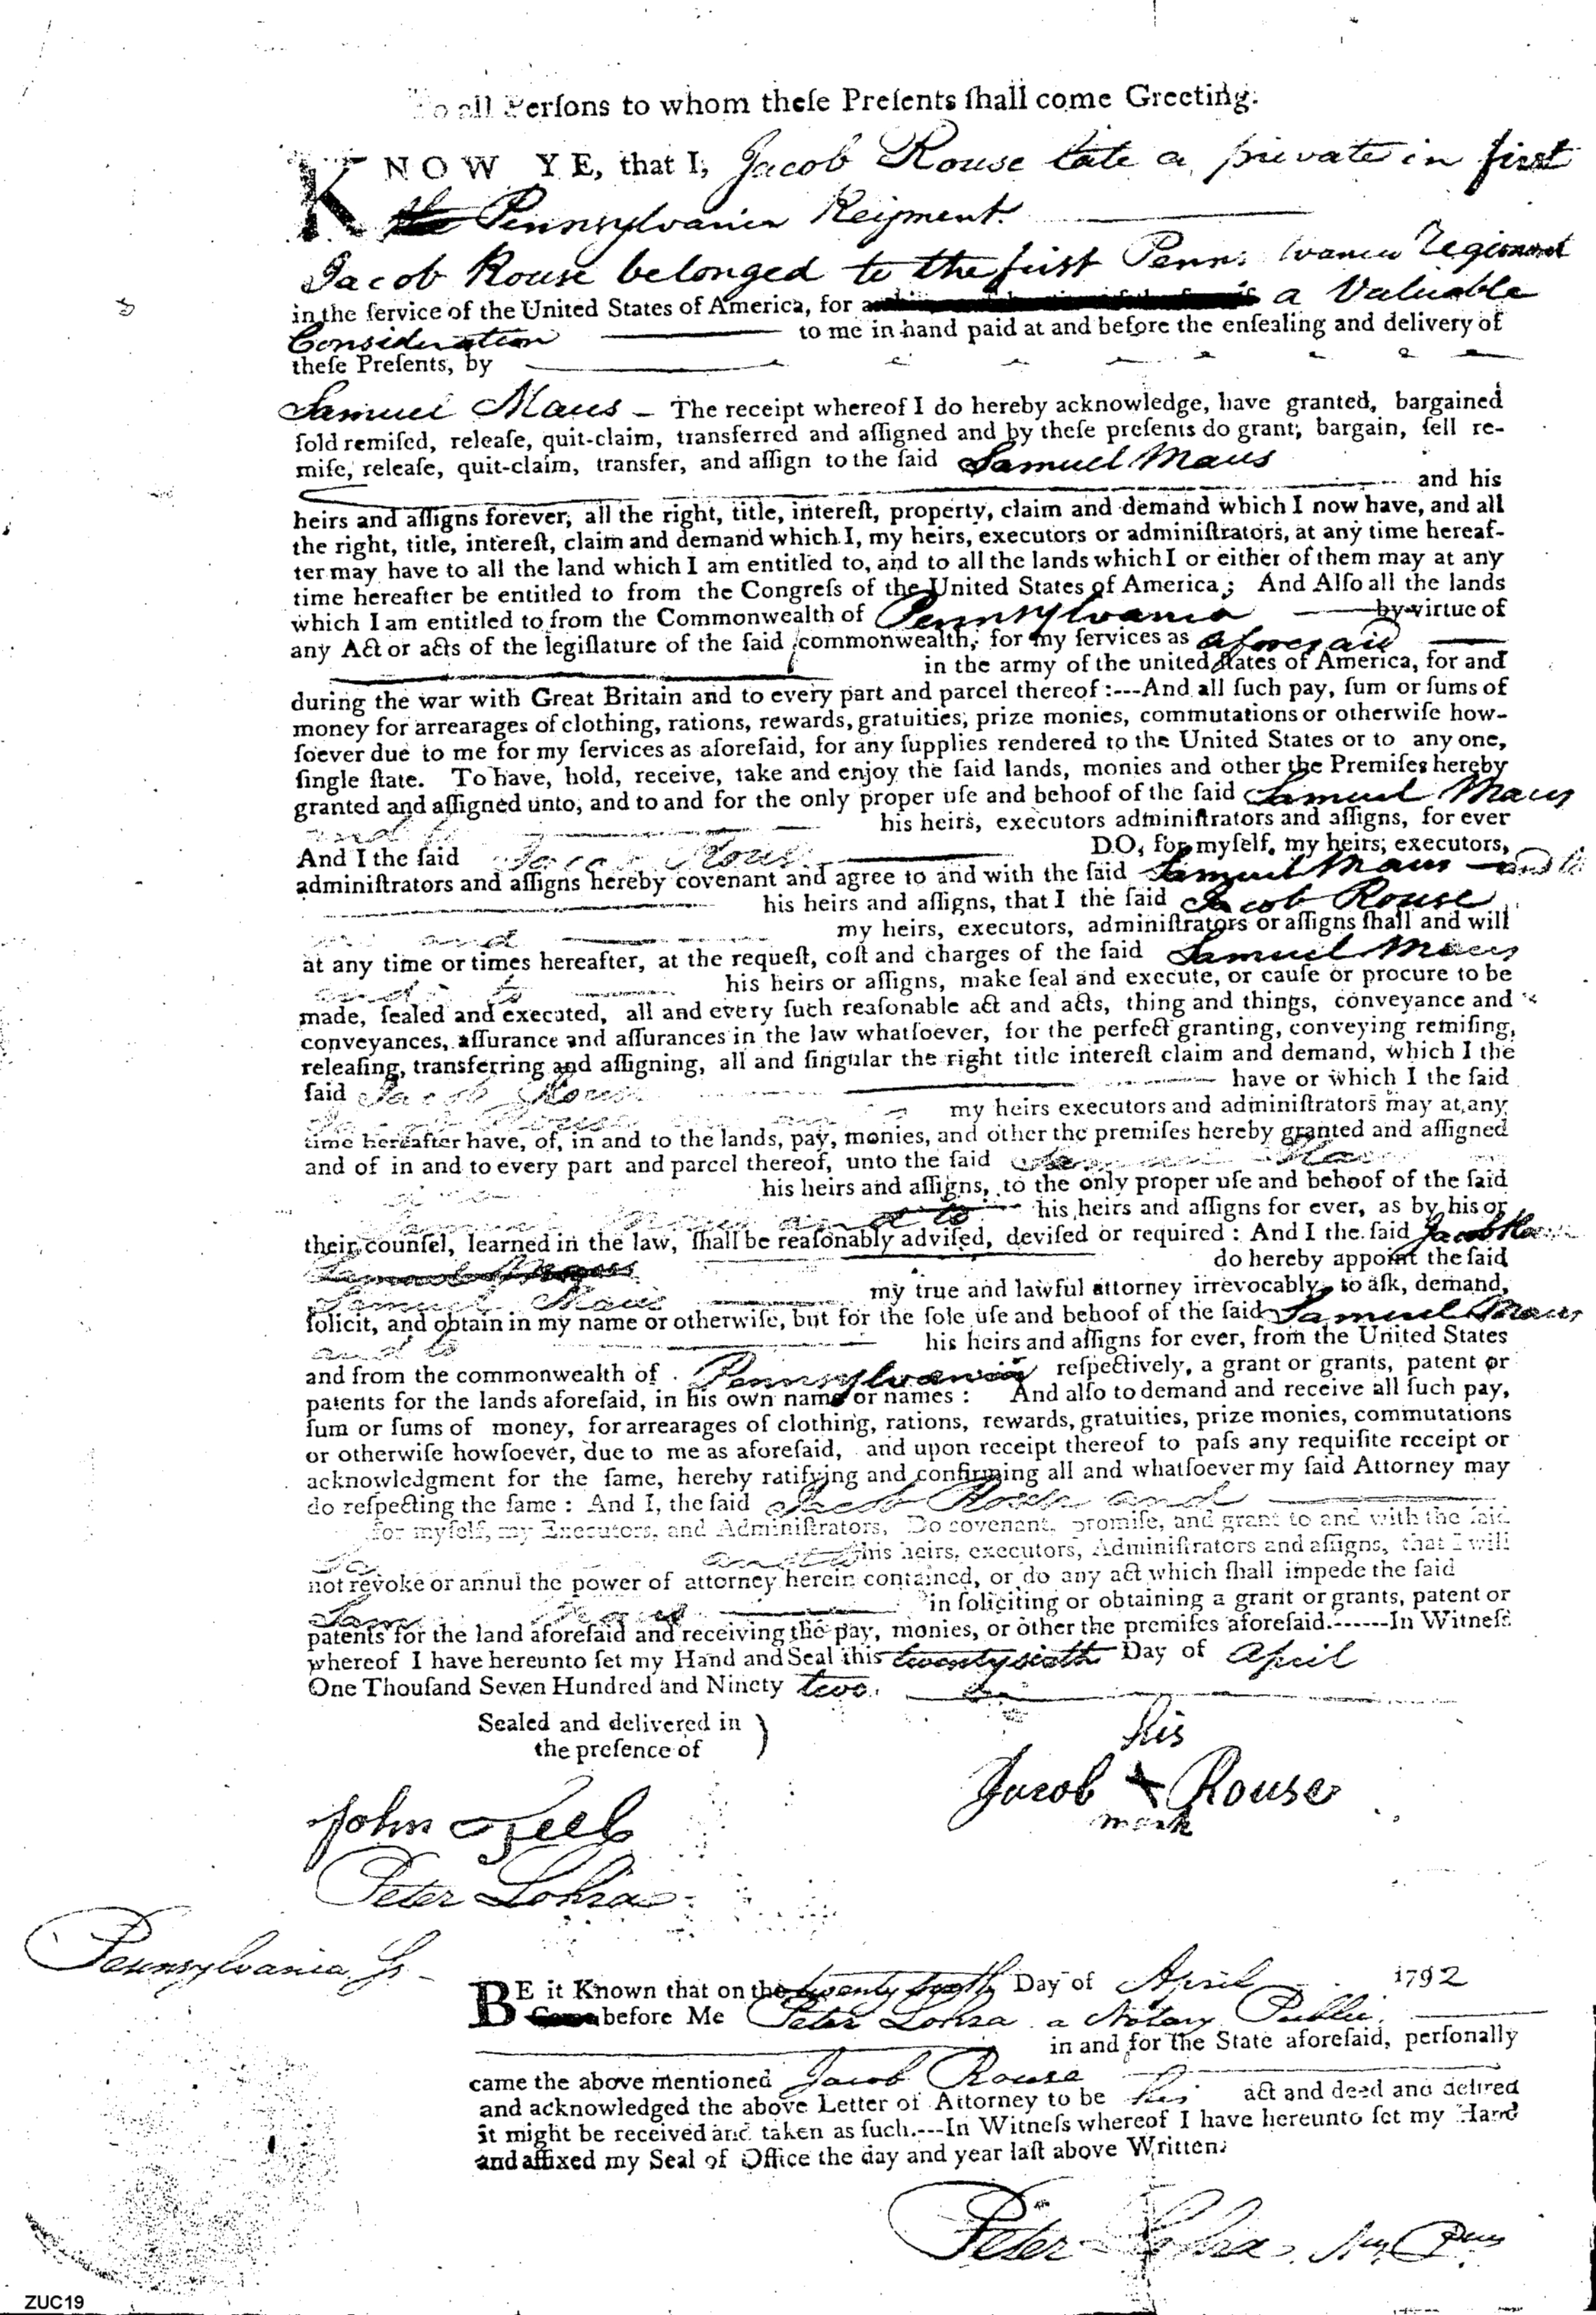 To all Perſons to whom theſe Preſents ſhall come Greeting.
KNOW YE, that I, Jacob Rouse late a private in first
Pennsylvania Reigment.
Jacob Rouse belonged to the first Penns lvania Regiment
in the ſervice of the United States of America, for a Valuable
Consideration to me in hand paid at and before the enſealing and delivery of
theſe Preſents, by
Samuel Maus - The receipt whereof I do hereby acknowledge, have granted, bargained
ſold remiſed, releaſe, quit-claim, transferred and aſſigned and by theſe preſents do grant, bargain, ſell re-
miſe, releaſe, quit-claim, transfer, and aſſign to the ſaid Samuel Maus
and his
heirs and aſſigns forever, all the right, title, intereſt, property, claim and demand which I now have, and all
the right, title, intereſt, claim and demand which I, my heirs, executors or adminiſtrators, at any time hereaf-
ter may have to all the land which I am entitled to, and to all the lands which I or either of them may at any
time hereafter be entitled to from the Congreſs of the United States of America; And Alſo all the lands
which I am entitled to from the Commonwealth of Pennsylvania by virtue of
any Act or acts of the legiſlature of the ſaid commonwealth, for my ſervices as aforesaid
in the army of the united ſtates of America, for and
during the war with Great Britain and to every part and parcel thereof :---And all ſuch pay, ſum or ſums of
money for arrearages of clothing, rations, rewards, gratuities, prize monies, commutations or otherwiſe how-
ſoever due to me for my ſervices as aforeſaid, for any ſupplies rendered to the United States or to any one,
ſingle ſtate. To have, hold, receive, take and enjoy the ſaid lands, monies and other the Premiſes hereby
granted and aſſigned unto, and to and for the only proper uſe and behoof of the ſaid Samuel Maus
and to his heirs, executors adminiſtrators and aſſigns, for ever
And I the ſaid Jacob Rouse DO, for myſelf, my heirs, executors,
adminiſtrators and aſſigns hereby covenant and agree to and with the ſaid Samuel Maus and to
his heirs and aſſigns, that I the ſaid Jacob Rouse
and my heirs, executors, adminiſtrators or aſſigns ſhall and will
at any time or times hereafter, at the requeſt, coſt and charges of the ſaid Samuel Maus
and to his heirs or aſſigns, make ſeal and execute, or cauſe or procure to be
made, ſealed and executed, all and every ſuch reaſonable act and acts, thing and things, conveyance and
conveyances, aſſurance and aſſurances in the law whatſoever, for the perfect granting, conveying remiſing,
releaſing, transferring and aſſigning, all and ſingular the right title intereſt claim and demand, which I the
ſaid Jacob Rouse have or which I the ſaid
Jacob Rouse my heirs executors and adminiſtrators may at any
time hereafter have, of, in and to the lands, pay, monies, and other the premiſes hereby granted and aſſigned
and of in and to every part and parcel thereof, unto the ſaid Samuel Maus
his heirs and aſſigns, to the only proper uſe and behoof of the ſaid
Samuel Maus and to his heirs and aſſigns for ever, as by his or
their counſel, learned in the law, ſhall be reaſonably adviſed, deviſed or required : And I the ſaid Jacob Rouse
do hereby appoint the ſaid
Samuel Maus my true and lawful attorney irrevocably, to aſk, demand,
ſolicit, and obtain in my name or otherwiſe, but for the ſole uſe and behoof of the ſaid Samuel Maus
and to his heirs and aſſigns for ever, from the United States
and from the commonwealth of Pennsylvania reſpectively, a grant or grants, patent or
patents for the lands aforeſaid, in his own name or names : And alſo to demand and receive all ſuch pay,
ſum or ſums of money, for arrearages of clothing, rations, rewards, gratuities, prize monies, commutations
or otherwiſe howſoever, due to me as aforeſaid, and upon receipt thereof to paſs any requiſite receipt or
acknowledgment for the ſame, hereby ratifying and confirming all and whatſoever my ſaid Attorney may
do reſpecting the ſame : And I, the ſaid Jacob Rouse and
for myſelf, my Executors, and Adminiſtrators, Do covenant, promiſe, and grant to and with the ſaid
and to his heirs, executors, Adminiſtrators and aſſigns, that I will
not revoke or annul the power of attorney herein contained, or do any act which ſhall impede the ſaid
Sam Maus in ſoliciting or obtaining a grant or grants, patent or
patents for the land aforeſaid and receiving the pay, monies, or other the premiſes aforeſaid.------In Witneſs
whereof I have hereunto ſet my Hand and Seal this twenty sixth Day of April
One Thouſand Seven Hundred and Ninety two.
Sealed and delivered in )
the preſence of
his
Jacob X Rouse
mark
John Teel
Peter Lohra
Pennsylvania, Ss
BE it Known that on the twenty sixth Day of April 1792
before Me Peter Lohra a Notary Public
in and for the State aforeſaid, perſonally
came the above mentioned Jacob Rouse
and acknowledged the above Letter of Attorney to be his act and deed and deſired
it might be received and taken as ſuch.---In Witneſs whereof I have hereunto ſet my Hand
and affixed my Seal of Office the day and year laſt above Written.
Peter Lohra
ZUC19